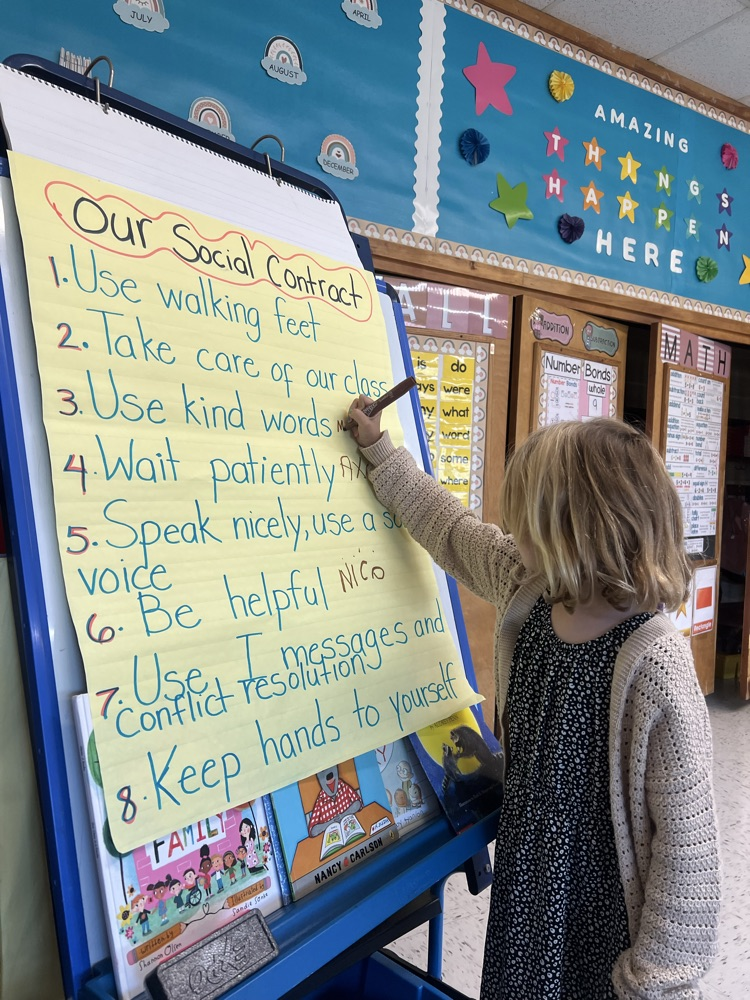 JULY
APRIL
AUGUST
DECEMBER
AMAZING
THINGS
HAPPEN
HERE
Our Social Contract
1. Use walking feet
2. Take care of our class
3. Use kind words
4. Wait patiently
5. Speak nicely, use a
voice
6. Be helpful NICO
7. Use I messages and
conflict resolution
8. Keep hands to yourself
ALL
is do
were
what
word
some
where
ADDITION
Number Bonds
Number Bonds
whole
9
MATH
FAMILY
Written by
Shannon Olsen
Illustrated by
Sandie Sonke
NANCY CARLSON